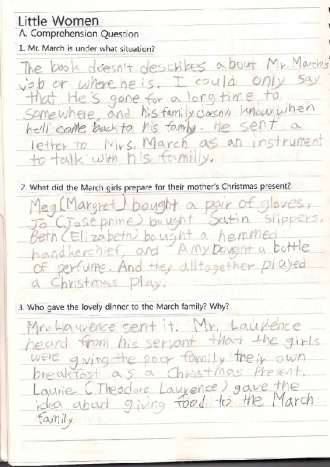 Little Women
A. Comprehension Question
1. Mr. March is under what situation?
The book doesn't describes about Mr. March's
job or where he is. I could only say
that He's gone for a long time to
somewhere, and his family doesn't know when
he'll come back to his family. He sent a
letter to Mrs. March as an instrument
to talk with his familly.
2. What did the March girls prepare for their mother's Christmas present?
Meg (Margret) bought a pair of gloves,
Jo (Joseprine) bought Satin slippers,
Beth (Elizabeth) bought a hemmed
handkerchief, and Amy bought a bottle
of perfume. And they alltogether played
a Christmas play.
3. Who gave the lovely dinner to the March family? Why?
Mr. Laurence sent it. Mr. Laurence
heard from his servant that the girls
were giving the poor family their own
breakfast as a Christmas Present.
Laurie (Theodore Laurence) gave the
idea about giving food to the March
family